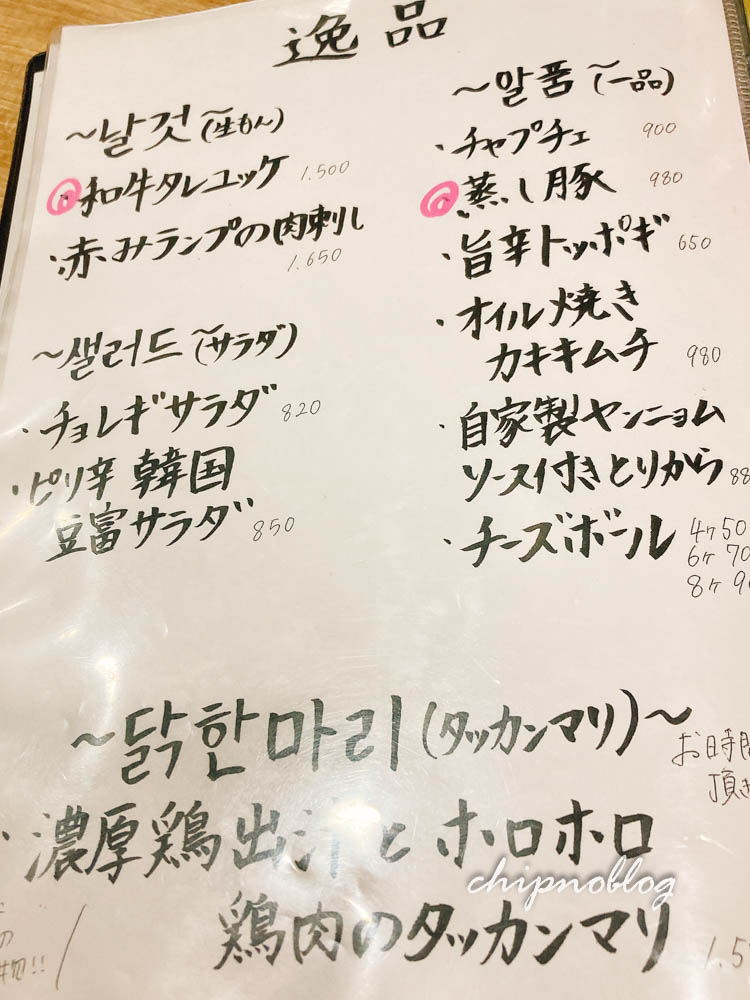 逸品
～날것～(生もん)
・和牛タレユッケ 1.500
・赤みランプの肉刺し
1.650
～샐러드～(サラダ)
・チョレギサラダ 820
・ピリ辛 韓国
豆富サラダ 850
～일품～(一品)
・チャプチェ 900
・蒸し豚 980
・旨辛トッポギ 650
・オイル焼き
カキキムチ 980
・自家製ヤンニョム
ソース付きとりから
・チーズボール 4ヶ
6ヶ
8ヶ
～닭한마리(タッカンマリ)～
お時間
頂き
・濃厚鶏出汁とホロホロ
鶏肉のタッカンマリ
chipnoblog